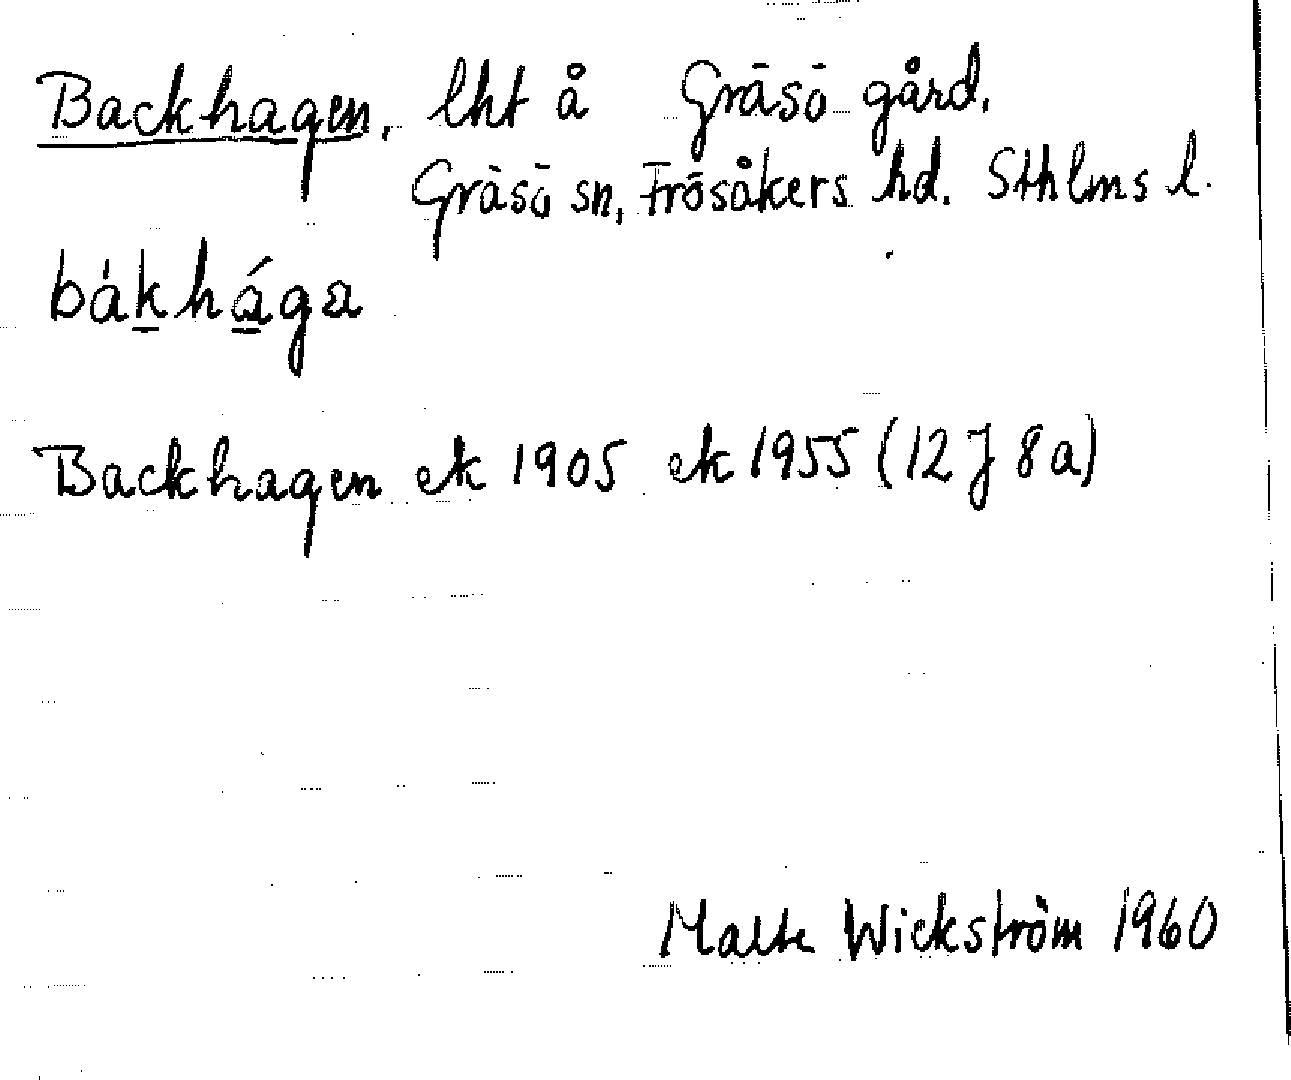 Backhagen, lht å Gräsö gård,
Gräsö sn, Frösåkers hd. Sthlms l.
bákhága
Backhagen ek 1905 ek 1955 (12 J 8 a)
Malte Wickström 1960